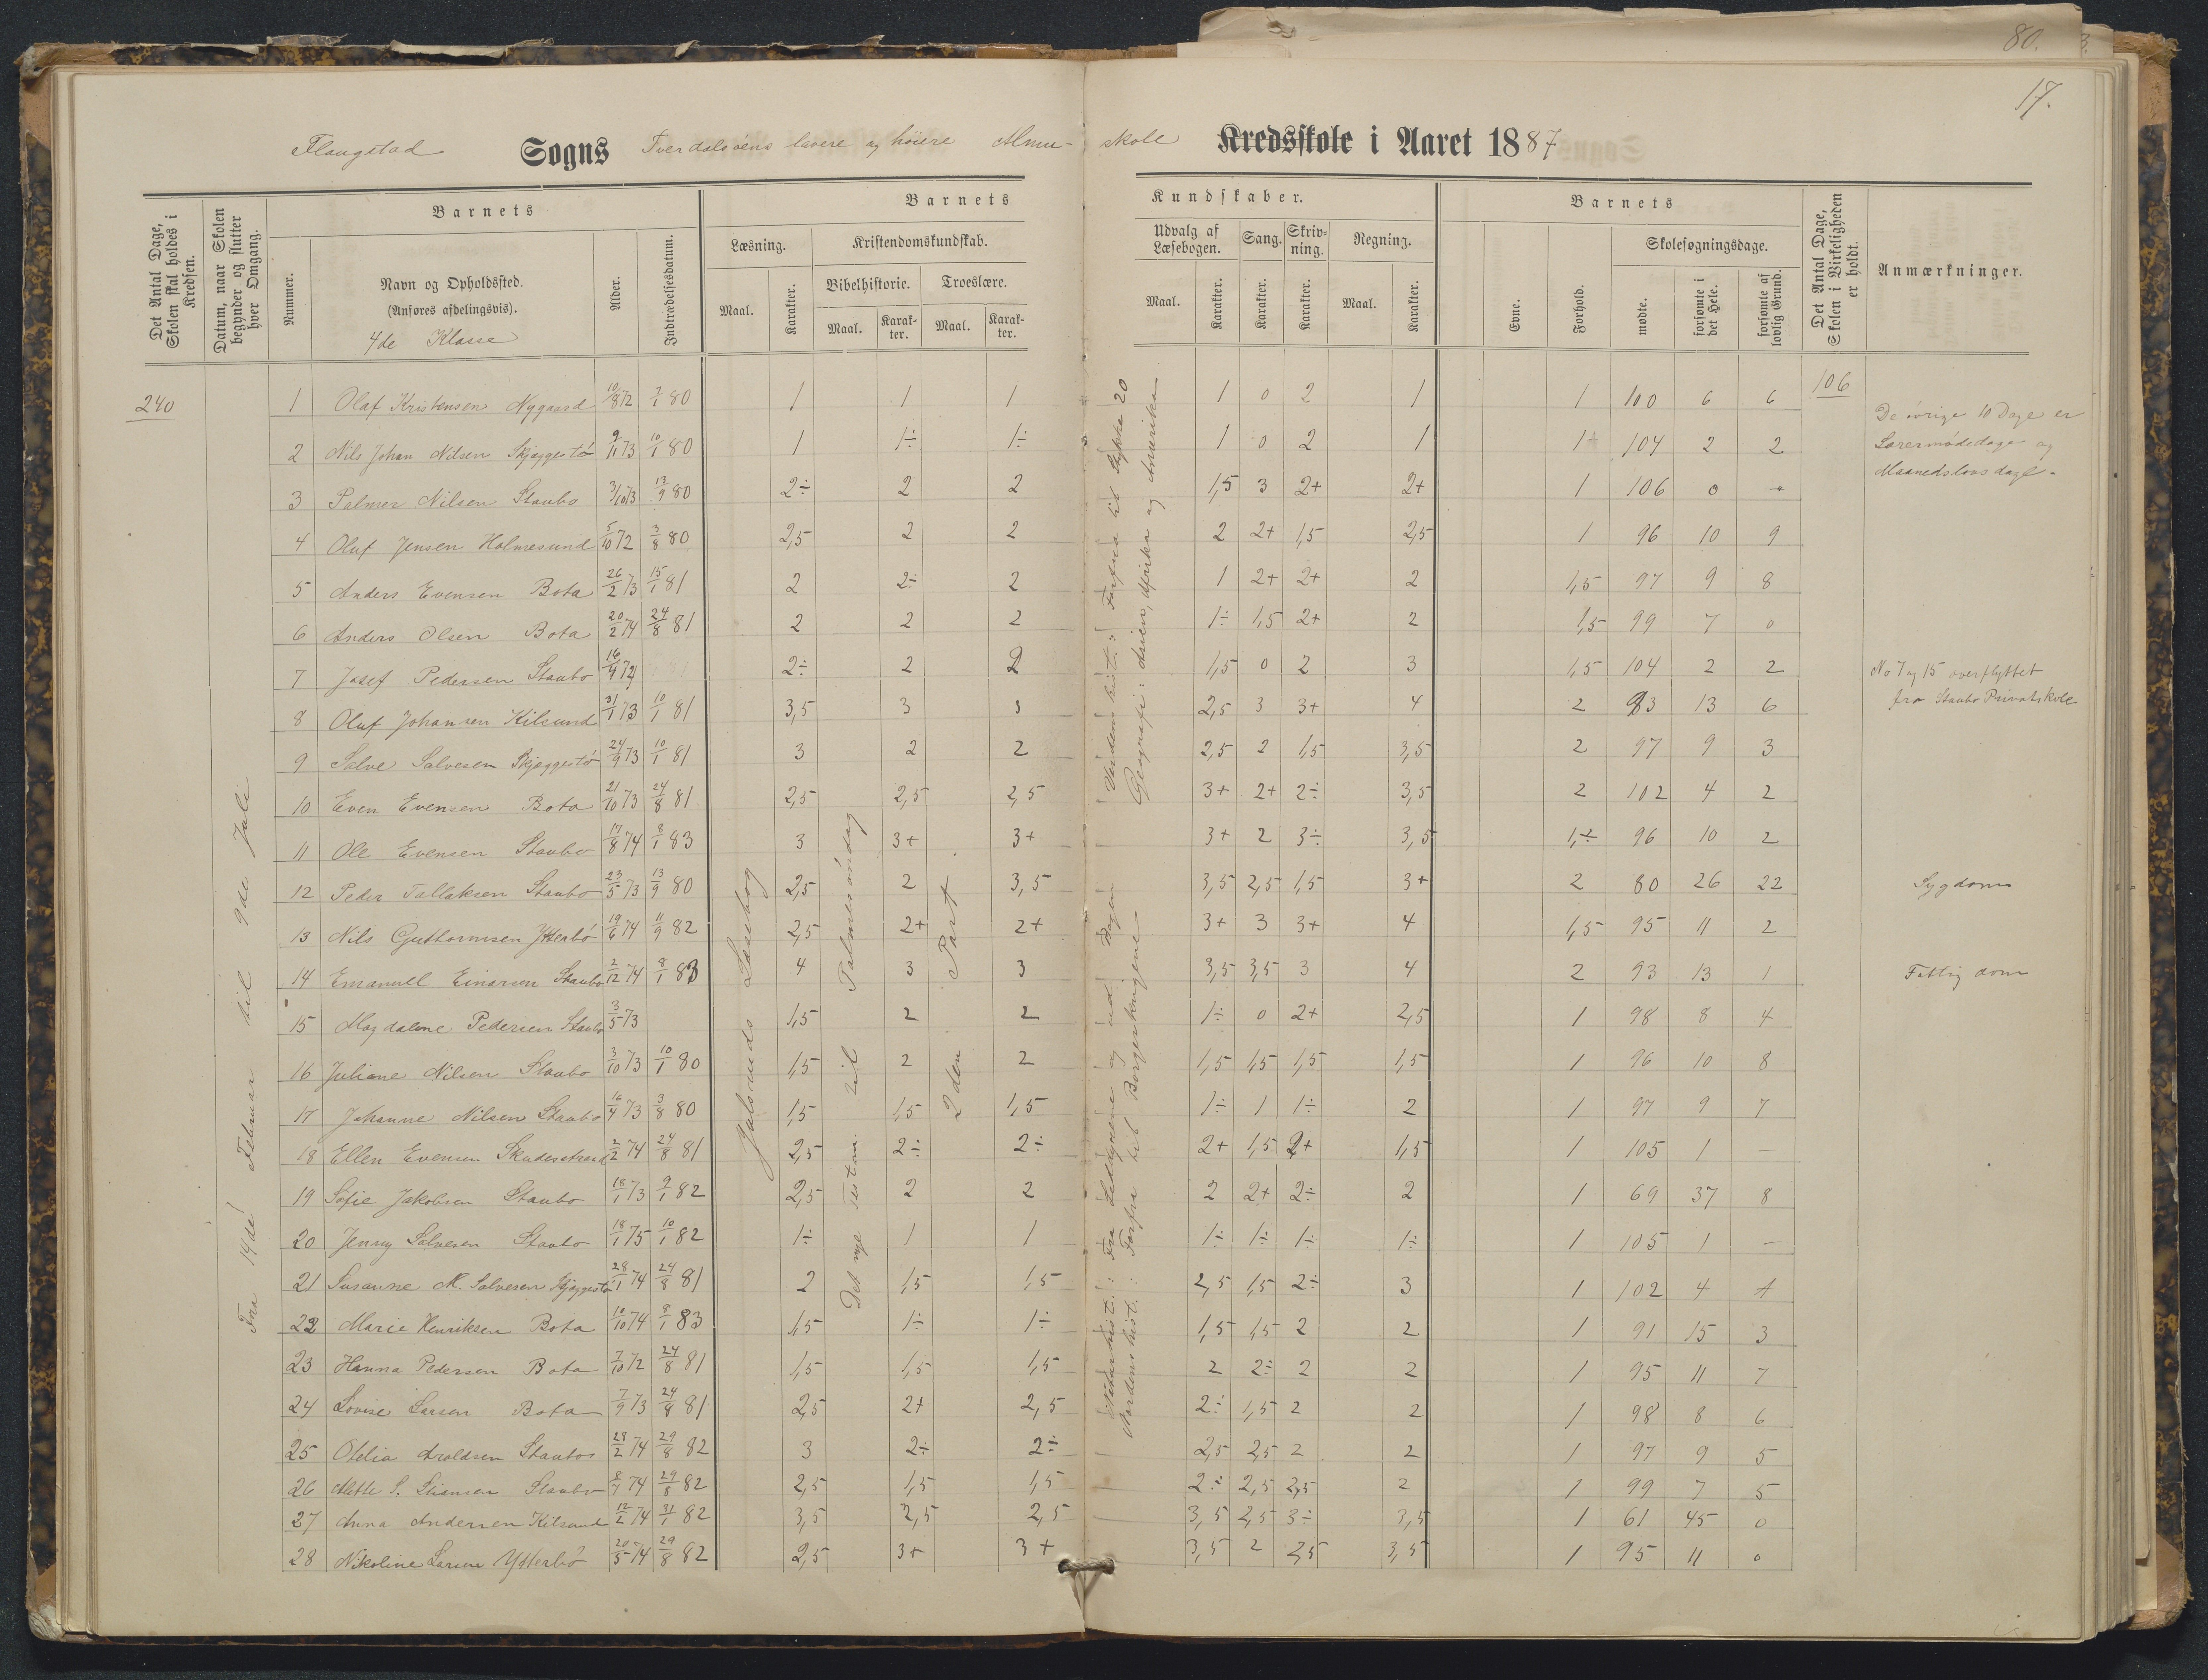 80.
17.
Flangstad Sogns Tverdalsöens lavere og höiere Almu- skole Kredsskole i Aaret 1887
Det Antal Dage, Skolen skal holdes i Kredsen.
Datum, naar Skolen begynder og slutter hver Omgang.
Barnets
Nummer.
Navn og Opholdssted.
(Anføres afdelingsvis).
4de Klasse
Alder.
Indtrædelsesdatum.
Barnets Kundskaber.
Læsning. Kristendomskundskab. Udvalg af Læsebogen. Sang. Skrivning. Regning.
Bibelhistorie. Troeslære.
Maal. Karakter. Maal. Karakter. Maal. Karakter. Maal. Karakter. Karakter. Karakter. Maal. Karakter.
Barnets
Evne. Forhold. Skolesøgningsdage.
mødte. forsømte i det Hele. forsømte af lovlig Grund.
Det Antal Dage, Skolen i Virkeligheden er holdt.
Anmærkninger.
240
Fra 14de Februar til 9de Juli
Jensens Læsebog
Det nye Testam. til Palmesöndag
2den Part
106
1 Olaf Kristensen Nygaard 10/8 72 7/1 80 1 1 1 1 0 2 1 1 100 6 6
2 Nils Johan Nilsen Skjæggestö 9/11 73 10/1 80 1 1÷ 1÷ 1 0 2 1 1+ 104 2 2
3 Palmer Nilsen Staubo 3/10 73 13/9 80 2÷ 2 2 1,5 3 2+ 2+ 1 106 0
4 Oluf Jensen Holmesund 5/10 72 3/8 80 2,5 2 2 2 2+ 1,5 2,5 1 96 10 9
5 Anders Evensen Bota 26/2 73 15/1 81 2 2÷ 2 1 2+ 2+ 2 1,5 97 9 8
6 Anders Olsen Bota 20/2 74 24/8 81 2 2 2 1÷ 1,5 2+ 2 1,5 99 7 0
7 Josef Pedersen Staubo 16/4 72 2÷ 2 2 1,5 0 2 3 1,5 104 2 2
8 Oluf Johansen Kilsund 31/1 73 10/1 81 3,5 3 3 2,5 3 3+ 4 2 93 13 6
9 Salve Salvesen Skjæggestö 24/9 73 10/1 81 3 2 2 2,5 2 1,5 3,5 2 97 9 3
10 Even Evensen Bota 21/10 73 24/8 81 2,5 2,5 2,5 3+ 2+ 2÷ 3,5 2 102 4 2
11 Ole Evensen Staubo 17/8 74 8/1 83 3 3+ 3+ 3+ 2 3÷ 3,5 1÷ 96 10 2
12 Peder Tallaksen Staubo 23/5 73 13/9 80 2,5 2 3,5 3,5 2,5 1,5 3+ 2 80 26 22 Sygdom
13 Nils Guttormsen Ytterbö 19/6 74 11/9 82 2,5 2+ 2+ 3+ 3 3+ 4 1,5 95 11 2
14 Emanuel Einarsen Staubo 2/12 74 8/1 83 4 3 3 3,5 3,5 3 4 2 93 13 1 Fattigdom
15 Magdalene Pedersen Staubo 3/5 73 1,5 2 2 1÷ 0 2+ 2,5 1 98 8 4
16 Juliane Nilsen Staubo 3/10 73 10/1 80 1,5 2 2 1,5 1,5 1,5 1,5 1 96 10 8
17 Johanne Nilsen Staubo 16/4 73 3/8 80 1,5 1,5 1,5 1÷ 1 1÷ 2 1 97 9 7
18 Ellen Evensen Skudesstrand 2/2 74 24/8 81 2,5 2÷ 2÷ 2+ 1,5 2+ 1,5 1 105 1 —
19 Sofie Jakobsen Staubo 18/1 73 9/1 82 2,5 2 2 2 2+ 2÷ 2 1 69 37 8
20 Jenny Salvesen Staubo 18/1 75 10/1 82 1÷ 1 1 1÷ 1÷ 1÷ 1÷ 1 105 1 —
21 Susanne M. Salvesen Skjæggestö 28/1 74 24/8 81 2 1,5 1,5 2,5 1,5 2÷ 3 1 102 4 1
22 Marie Henriksen Bota 10/10 74 8/1 83 1,5 1÷ 1÷ 1,5 1,5 2 2 1 91 15 3
23 Hanna Pedersen Bota 7/10 72 24/8 81 1,5 1,5 1,5 2 2÷ 2 2 1 95 11 7
24 Lovise Larsen Bota 7/9 73 24/8 81 2,5 2+ 2,5 2÷ 1,5 2 2 1 98 8 6
25 Otelia Aroldsen Staubo 28/2 74 29/8 82 3 2÷ 2÷ 2,5 2,5 2 2 1 97 9 5
26 Mette S. Stiansen Staubo 8/7 74 29/8 82 2,5 1,5 1,5 2÷ 2,5 2,5 2 1 99 7 5
27 Anna Andersen Kilsund 12/2 74 31/1 82 3,5 2,5 2,5 3,5 2,5 3÷ 3,5 1 61 45 0
28 Nikoline Larsen Ytterbö 20/5 74 29/8 82 2,5 3+ 3+ 3,5 2 2,5 3,5 1 95 11 0
Verdenshist.: Forfra til Stykke 20
Geografi: Asien, Afrika og Amerika
Naturhist.: Fra Leddyrene og ud Bogen
Nordens hist.: Forfra til Borgerkrigene
De övrige 10 Dage er
Lærermödedage og
Maanedslovsdage.
No 7 og 15 overflyttet
fra Staubo Privatskole